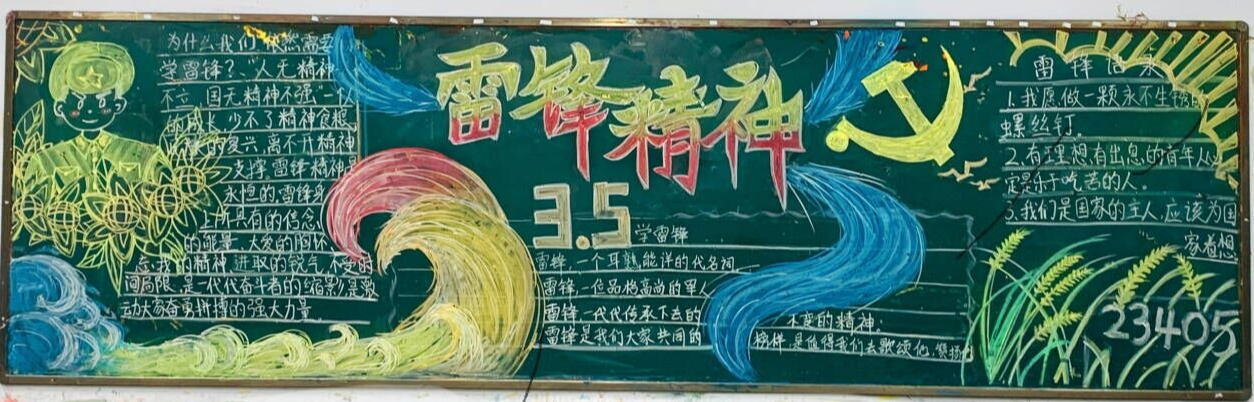 为什么我们依然需要
学雷锋?、"人无精神
不立,国无精神不强"一人
的成长,少不了精神食粮,
的复兴,离不开精神
支撑,雷锋精神是
永恒的,雷锋身
上所具有的信念
的能量、大爱的胸怀
忘我的精神,进取的锐气,不变的
间局限,是一代代奋斗者的缩影,是激
动大家奋勇拼搏的强大力量
雷锋精神
3.5
学雷锋
雷锋,一个耳熟能详的代名词
雷锋,一位品格高尚的军人
雷锋,一代代传承下去的
不变的精神.
雷锋是我们大家共同的
榜样,是值得我们去歌颂他,赞扬他
雷锋语录
1.我愿做一颗永不生锈的
螺丝钉.
2.有理想,有出息的青年人必
定是乐于吃苦的人.
3.我们是国家的主人,应该为国
家着想
23405